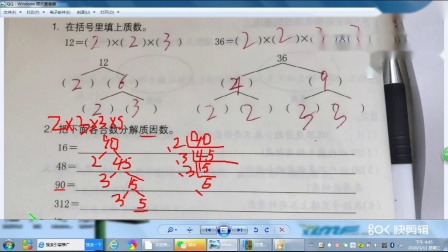 Windows 照片查看器
1. 在括号里填上质数。
12=(2)×(2)×(3) 36=(2)×(2)×(3)×(3)
12 36
(2) (6) (4) (9)
(2) (3) (2) (2) (3) (3)
2×3×3×5
2. 把下面各合数分解质因数。
16=
90 2 90
2 45 3 45
48= 3 15 3 15
90= 3 5 5
312=
快剪辑
下午 4:45